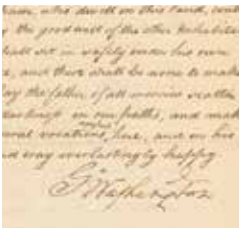 ham, who dwell in this land, cont
y the good will of the other Inhabitan
hall sit in safety under his own
e, and there shall be none to make
ay the father of all mercies scatter
darkness in our paths, and make
veral vocations here, and in his
nd way everlastingly happy
G. Washington